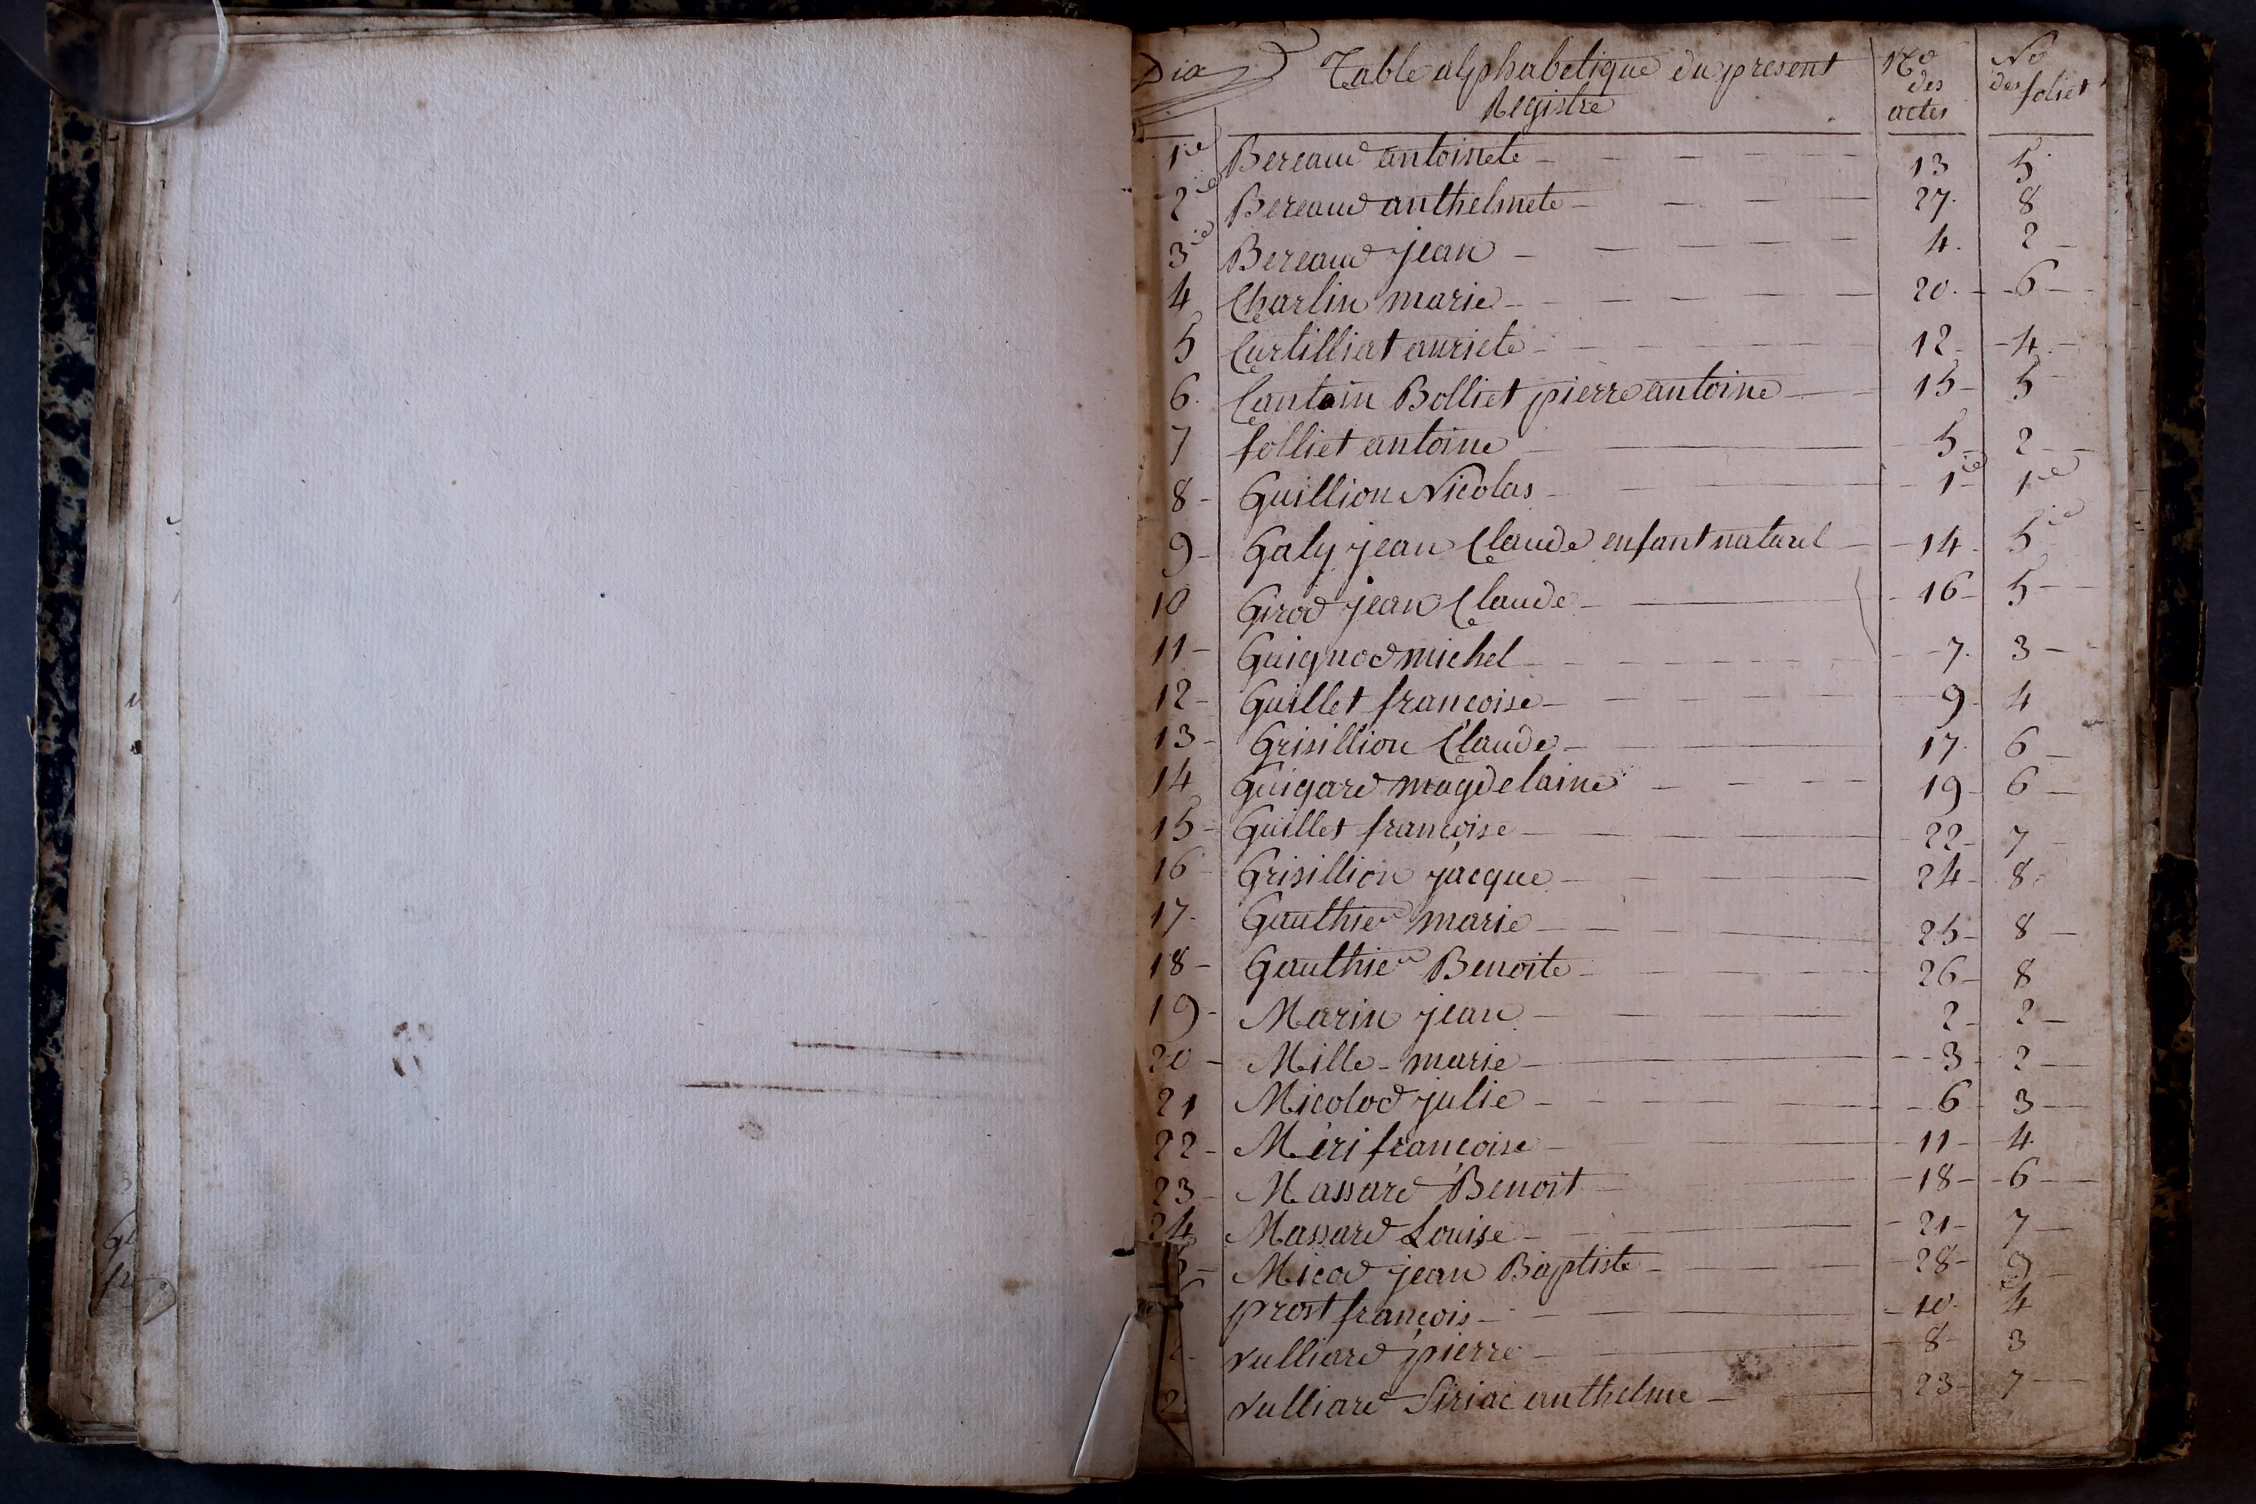 Dix Table alphabetique du present Registre No des actes No des foliet
1re Bereaud antoinete 13 5
2 Bereaud anthelmete 27 8
3 Bereaud jean 4 2
4 Charlin marie 20 6
5 Curtilliat anriete 12 4
6 Cantoin Bolliet pierre antoine 15 5
7 folliet antoine 5 2
8 Guillion Nicolas 1re 1re
9 Galy jean Claude enfant naturel 14 5
10 Girod jean Claude 16 5
11 Guignod michel 7 3
12 Guillet francoise 9 4
13 Grisillion Claude 17 6
14 Guigard magdelaine 19 6
15 Guillet francoise 22 7
16 Grisillion jacque 24 8
17 Gauthier marie 25 8
18 Gauthier Benoite 26 8
19 Marin jean 2 2
20 Mille marie 3 2
21 Micolod julie 6 3
22 Meri francoise 11 4
23 Massard Benoit 18 6
24 Massard Louise 21 7
5 Micod jean Baptiste 28 9
prost francois 10 4
vulliard pierre 8 3
2 vulliard Siriac anthelme 23 7